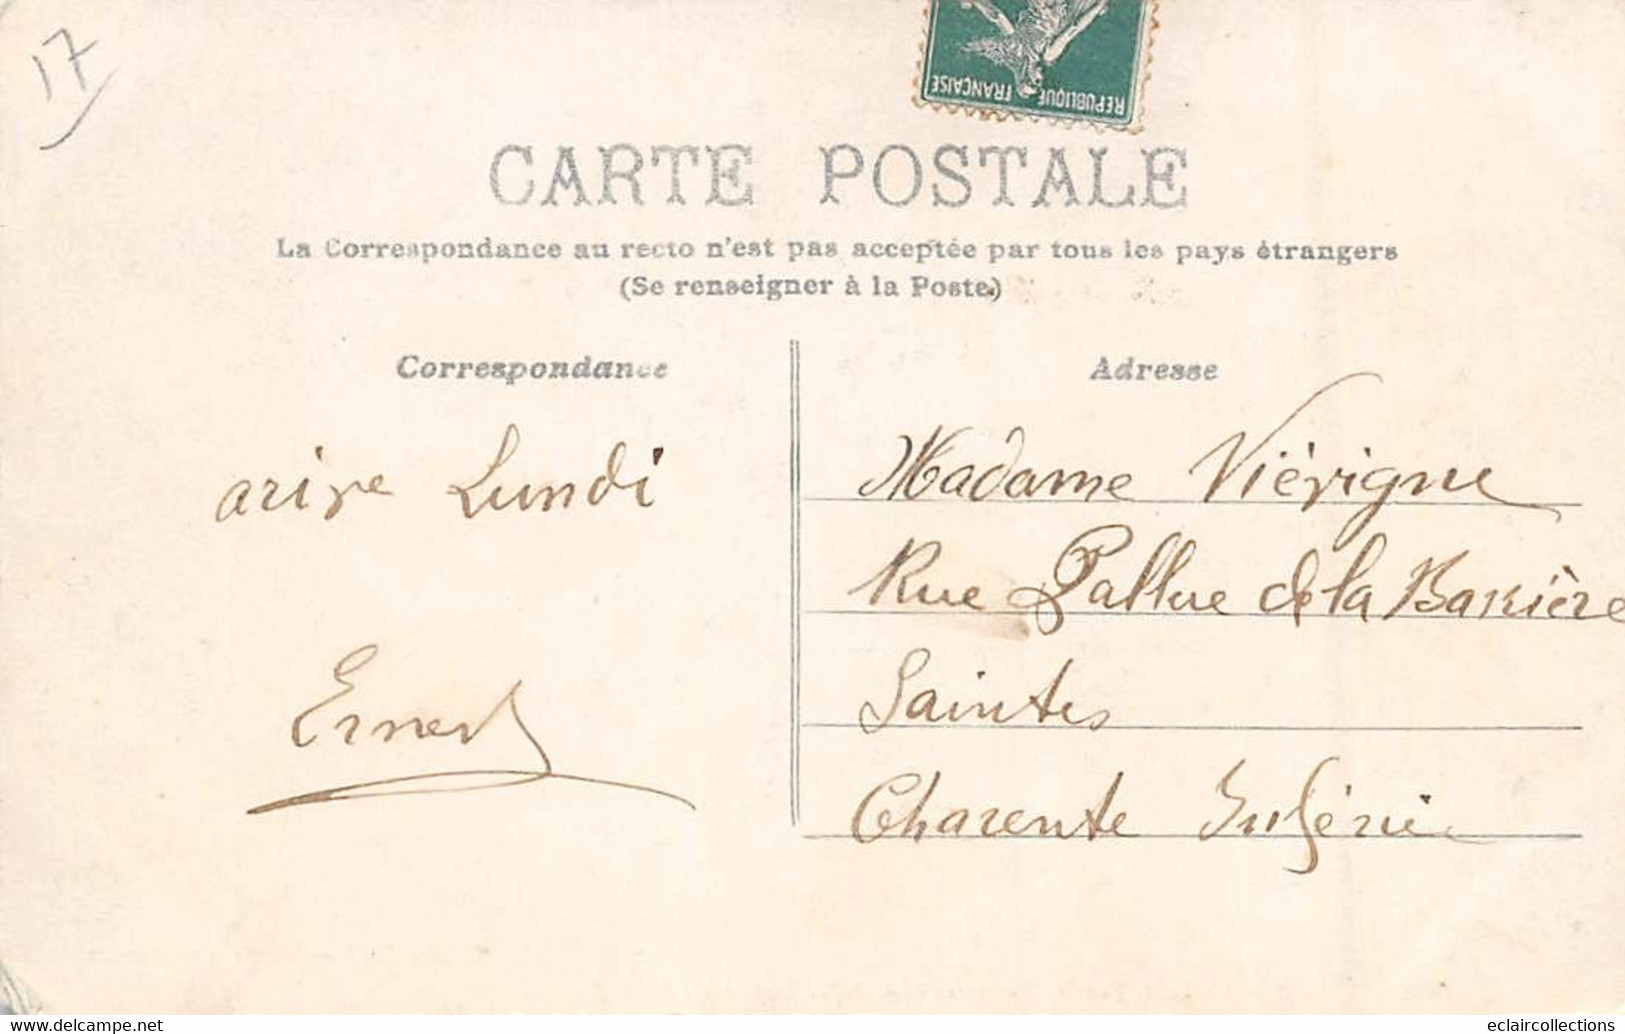 17
REPUBLIQUE FRANÇAISE
CARTE POSTALE
La Correspondance au recto n'est pas acceptée par tous les pays étrangers
(Se renseigner à la Poste)
Correspondance
Adresse
arive Lundi
Ernest
Madame Viérigne
Rue Pallue de la Barrière
Saintes
Charente Inférie
delcampe.net
eclaircollections